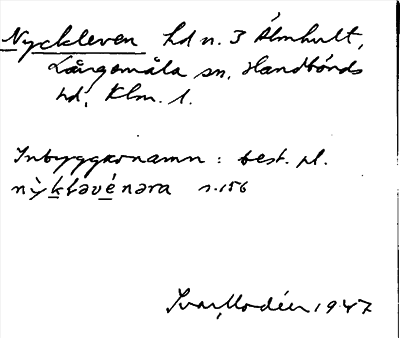 Nyckleven hd n. 3 Älmhult,
Långemåla sn, Handbörds
hd, Klm. l.
Inbyggarnamn: best. pl.
nỳkləvénəra s. 156
Ivar Modéer 1947